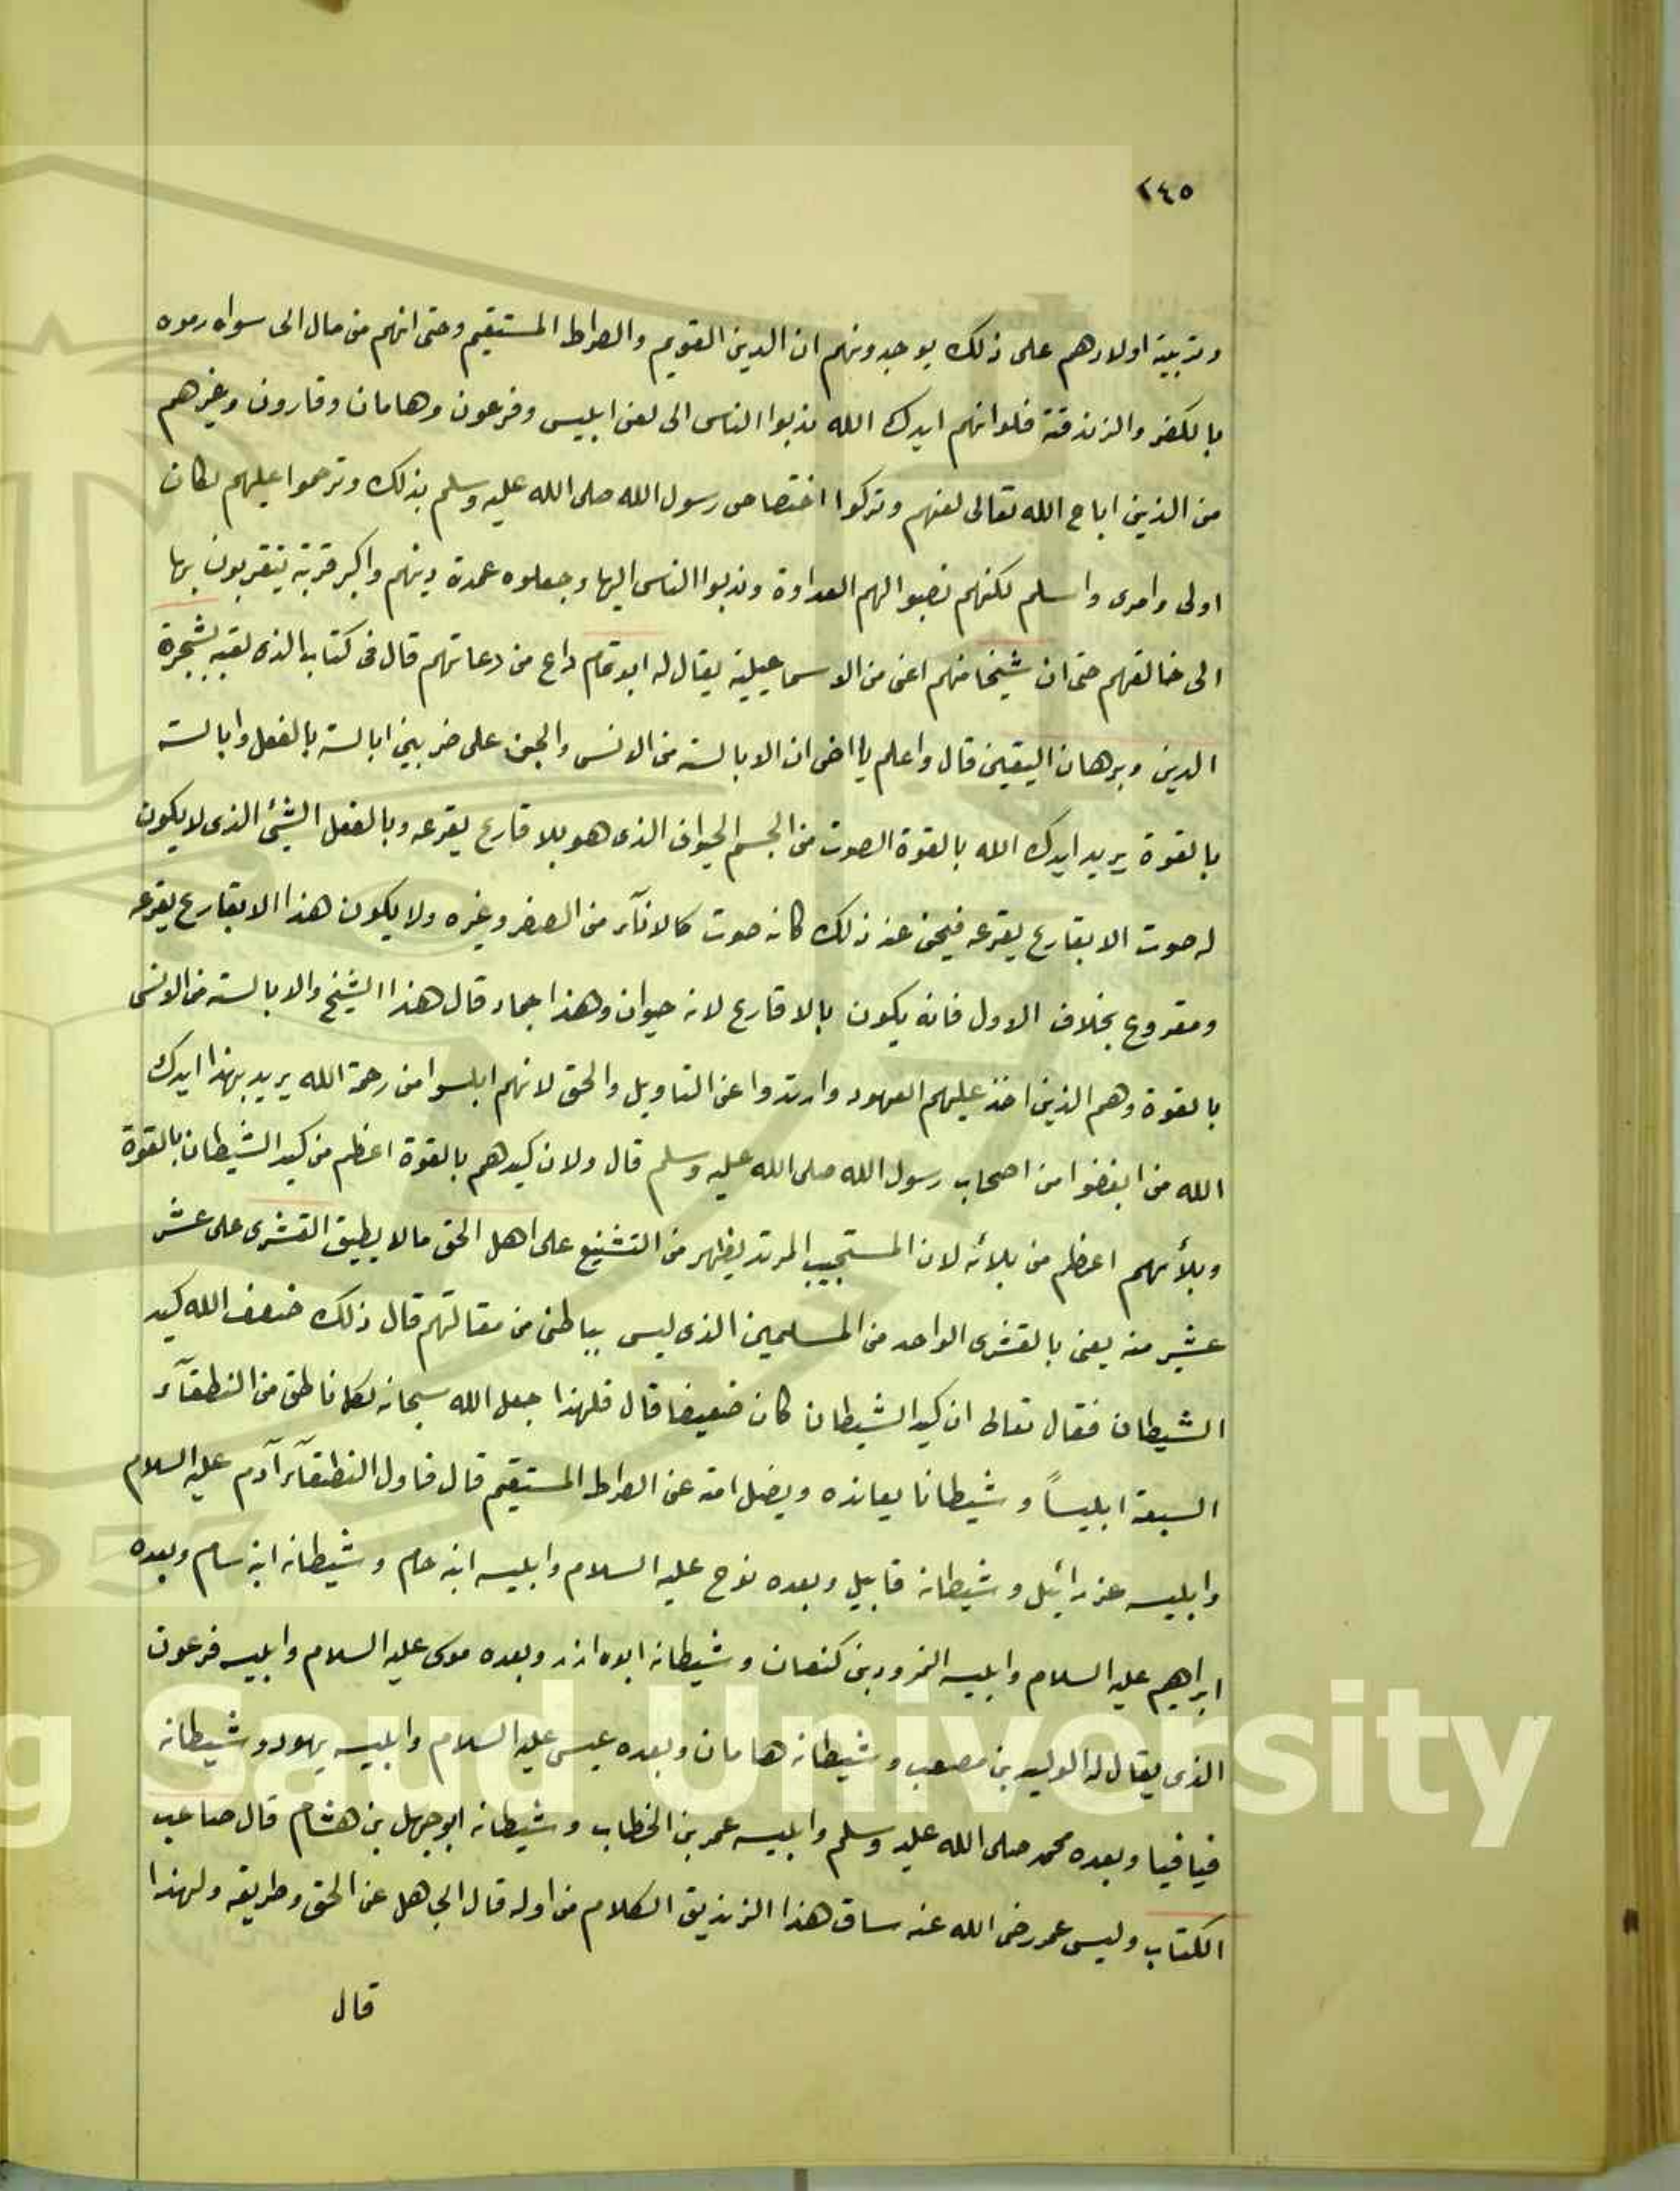 ٢٤٥
وتربية اولادهم على ذلك يوجدونهم ان الدين القويم والصراط المستقيم وحتى انهم من مال الى سواه رموه
بالكفر والزندقة فلو انهم ايدك الله ندبوا الناس الى لعن ابليس وفرعون وهامان وقارون وغيرهم
من الذين اباح الله تعالى لعنهم وتركوا اختصاص رسول الله صلى الله عليه وسلم بذلك وترحموا عليهم لكان
اولى واحرى واسلم لكنهم نصبوا لهم العداوة وندبوا الناس اليها وجعلوه عمدة دينهم واكبر قربة يتقربون بها
الى خالقهم حتى ان شيخا منهم اعنى من الاسماعيلية يقال له ابو تمام داع من دعاتهم قال فى كتابه الذى لقبه بشجرة
الدين وبرهان اليقين قال واعلم يا اخى ان الابالسة من الانس والجن على ضربين ابالسة بالفعل وابالسة
بالقوة يريد ايدك الله بالقوة الصوت من الجسم الحيوانى الذى هو بلا قارع يقرعه وبالفعل الشئ الذى لا يكون
له صوت الا بقارع يقرعه فيحن عند ذلك كانه صوت كالانآء من الصفر وغيره ولا يكون هذا الا بقارع يقرعه
ومقروع بخلاف الاول فانه يكون بالا قارع لانه حيوان وهذا جماد قال هذا الشيخ والابالسة من الانس
بالقوة وهم الذين اخذ عليهم العهود وارتدوا عن التاويل والحق لانهم ابلسوا من رحمة الله يريد بهذا ايدك
الله من ابغضوا من اصحاب رسول الله صلى الله عليه وسلم قال ولان كيدهم بالقوة اعظم من كيد الشيطان بالقوة
وبلأئهم اعظم من بلائه لان المستجيب المرتد يظهر من التشنيع على اهل الحق مالا يطيق القشرى على عشر
عشير منه يعنى بالقشرى الواحد من المسلمين الذى ليس بباطنى من مقالتهم قال ذلك ضعف الله كيد
الشيطان فقال تعالى ان كيد الشيطان كان ضعيفا قال فلهذا جعل الله سبحانه لكل ناطق من النطقآء
السبعة ابليساً وشيطانا يعانده ويضل امته عن الصراط المستقيم قال فاول النطقآء آدم عليه السلام
وابليسه عزرائيل وشيطانه قابيل وبعده نوح عليه السلام وابليسه ابنه حام وشيطانه ابنه سام وبعده
ابراهيم عليه السلام وابليسه النمرود بن كنعان وشيطانه ابوه ازر وبعده موسى عليه السلام وابليسه فرعون
الذى يقال له الوليد بن مصعب وشيطانه هامان وبعده عيسى عليه السلام وابليسه يهود وشيطانه
فيافيا وبعده محمد صلى الله عليه وسلم وابليسه عمر بن الخطاب وشيطانه ابوجهل بن هشام قال صاحب
الكتاب وليس عمر رضى الله عنه ساق هذا الزنديق الكلام من اوله قال الجاهل عن الحق وطريقه ولهذا
قال
g Saud University